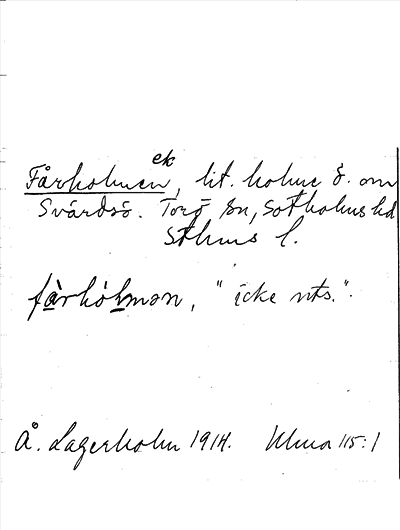 ek
Fårholmen, lit. holme ö. om
Svärdsö. Torö sn, Sotholms hd
Sthms l.
fårhólmon, "icke nts.".
Å. Lagerholm 1914. Ulma 115:1